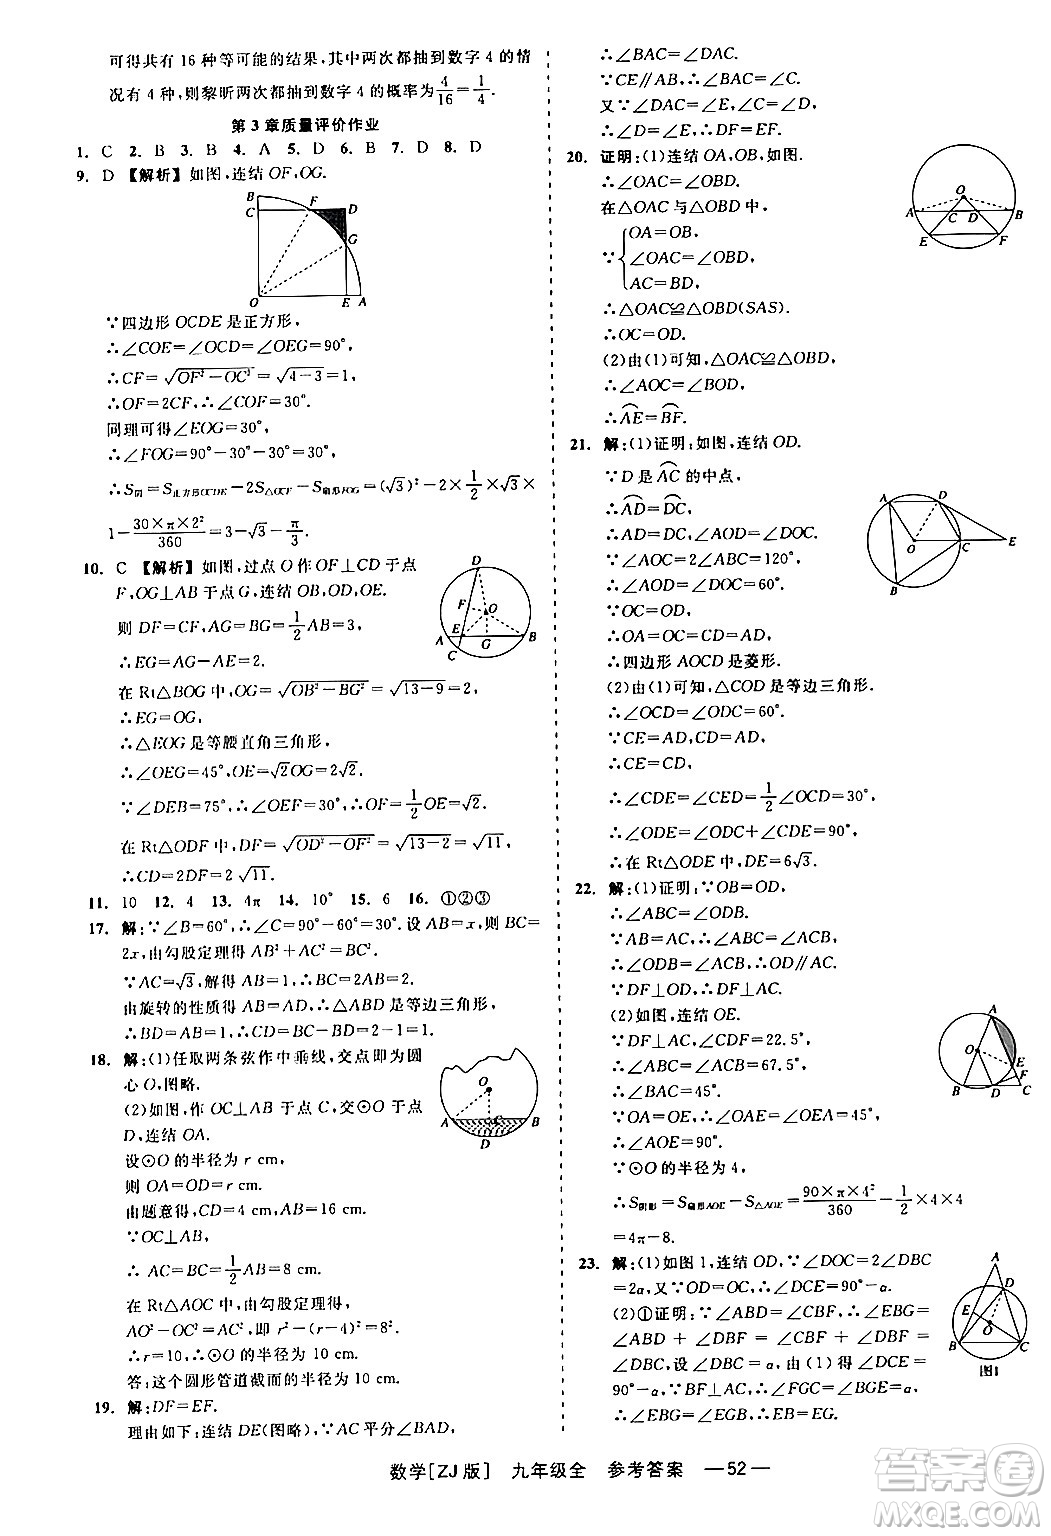 可得共有 16 种等可能的结果,其中两次都抽到数字 4 的情
况有 4 种,则黎昕两次都抽到数字 4 的概率为4/16=1/4.
第 3 章质量评价作业
1. C 2. B 3. B 4. A 5. D 6. B 7. D 8. D
9. D 【解析】如图,连结 OF,OG.
B F
C D
G
O E A
∵四边形 OCDE 是正方形,
∴∠COE=∠OCD=∠OEG=90°,
∴CF=√(OF²-OC²)=√(4-3)=1,
∴OF=2CF,∴∠COF=30°.
同理可得∠EOG=30°,
∴∠FOG=90°-30°-30°=30°,
∴S阴=S正方形OCDE-2S△OCF-S扇形FOG=(√3)²-2×1/2×√3×
1-30×π×2²/360=3-√3-π/3.
10. C 【解析】如图,过点 O 作 OF⊥CD 于点
F,OG⊥AB 于点 G,连结 OB,OD,OE.
则 DF=CF,AG=BG=1/2AB=3,
∴EG=AG-AE=2.
在 Rt△BOG 中,OG=√(OB²-BG²)=√(13-9)=2,
∴EG=OG,
∴△EOG 是等腰直角三角形,
∴∠OEG=45°,OE=√2OG=2√2.
∵∠DEB=75°,∴∠OEF=30°,∴OF=1/2OE=√2.
在 Rt△ODF 中,DF=√(OD²-OF²)=√(13-2)=√11,
∴CD=2DF=2√11.
D
F O
A E G B
C
11. 10 12. 4 13. 4π 14. 10° 15. 6 16. ①②③
17. 解:∵∠B=60°,∴∠C=90°-60°=30°.设 AB=x,则 BC=
2x,由勾股定理得 AB²+AC²=BC².
∵AC=√3,解得 AB=1,∴BC=2AB=2.
由旋转的性质得 AB=AD,∴△ABD 是等边三角形,
∴BD=AB=1,∴CD=BC-BD=2-1=1.
18. 解:(1)任取两条弦作中垂线,交点即为圆
心 O,图略.
(2)如图,作 OC⊥AB 于点 C,交⊙O 于点
D,连结 OA.
设⊙O 的半径为 r cm,
则 OA=OD=r cm.
由题意得,CD=4 cm,AB=16 cm.
∵OC⊥AB,
∴ AC=BC=1/2AB=8 cm.
在 Rt△AOC 中,由勾股定理得,
AO²-OC²=AC²,即 r²-(r-4)²=8²,
∴r=10,∴⊙O 的半径为 10 cm.
答:这个圆形管道截面的半径为 10 cm.
O
A C B
D
19. 解:DF=EF.
理由如下:连结 DE(图略),∵AC 平分∠BAD,
∴∠BAC=∠DAC.
∵CE∥AB,∴∠BAC=∠C.
又∵∠DAC=∠E,∠C=∠D,
∴∠D=∠E,∴DF=EF.
20. 证明:(1)连结 OA,OB,如图.
∴∠OAC=∠OBD.
在△OAC 与△OBD 中,
OA=OB,
∵∠OAC=∠OBD,
AC=BD,
∴△OAC≌△OBD(SAS).
∴OC=OD.
(2)由(1)可知,△OAC≌△OBD,
∴∠AOC=∠BOD,
∴AE=BF.
O
A C D B
E F
21. 解:(1)证明:如图,连结 OD.
∵D 是AC的中点,
∴AD=DC,
∴AD=DC,∠AOD=∠DOC.
∵∠AOC=2∠ABC=120°,
∴∠AOD=∠DOC=60°.
∵OC=OD,
∴OA=OC=CD=AD,
∴四边形 AOCD 是菱形.
(2)由(1)可知,△COD 是等边三角形.
∴∠OCD=∠ODC=60°.
∵CE=AD,CD=AD,
∴CE=CD,
∴∠CDE=∠CED=1/2∠OCD=30°,
∴∠ODE=∠ODC+∠CDE=90°.
∴在 Rt△ODE 中,DE=6√3.
A D
O C E
B
22. 解:(1)证明:∵OB=OD,
∴∠ABC=∠ODB.
∵AB=AC,∴∠ABC=∠ACB,
∴∠ODB=∠ACB,∴OD∥AC.
∵DF⊥OD,∴DF⊥AC.
(2)如图,连结 OE.
∵DF⊥AC,∠CDF=22.5°,
∴∠ABC=∠ACB=67.5°,
∴∠BAC=45°.
∵OA=OE,∴∠OAE=∠OEA=45°,
∴∠AOE=90°.
∵⊙O 的半径为 4,
∴S阴影=S扇形AOE-S△AOE=90×π×4²/360-1/2×4×4
=4π-8.
A
O
E
F
B D C
23. 解:(1)如图 1,连结 OD,∵∠DOC=2∠DBC=
2α,又∵OD=OC,∴∠DCE=90°-α.
(2)①证明:∵∠ABD=∠CBF,∴∠EBG=
∠ABD + ∠DBF = ∠CBF + ∠DBF =
∠DBC,设∠DBC=α,由(1)得∠DCE=
90°-α,∵BF⊥AC,∴∠FGC=∠BGE=α,
∴∠EBG=∠EGB,∴EB=EG.
A
D
E
O
B C
图1
数学[ZJ版] 九年级全 参考答案 —52—
答案圈
MXQE.COM